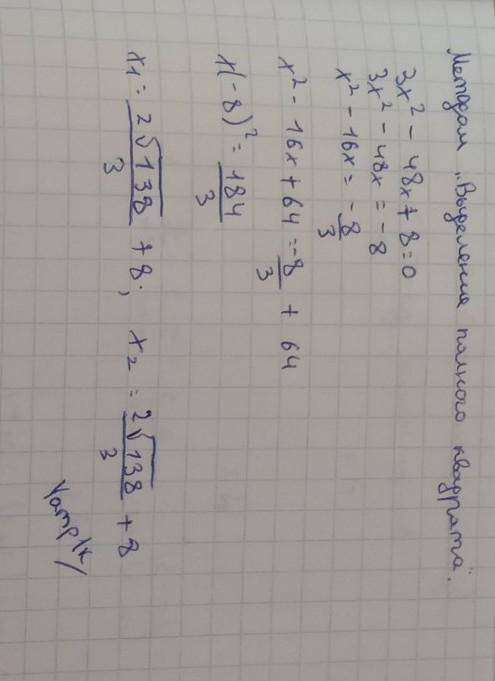 Методом „Выделение полного квадрата".
3x² - 48x + 8 = 0
3x² - 48x = -8
x² - 16x = -8/3
x² - 16x + 64 = -8/3 + 64
x(-8)² = 184/3
x₁ = 2√138/3 + 8; x₂ = 2√138/3 + 8